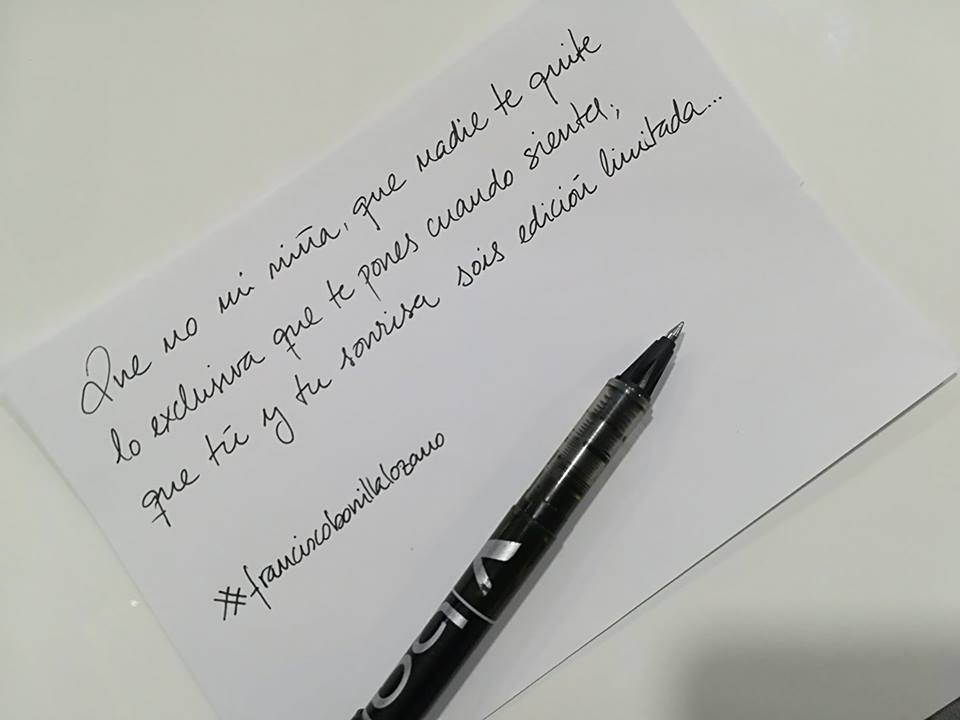 Que no mi niña, que nadie te quite
lo exclusiva que te pones cuando sientes;
que tú y tu sonrisa sois edición limitada...
#franciscobonillalozano